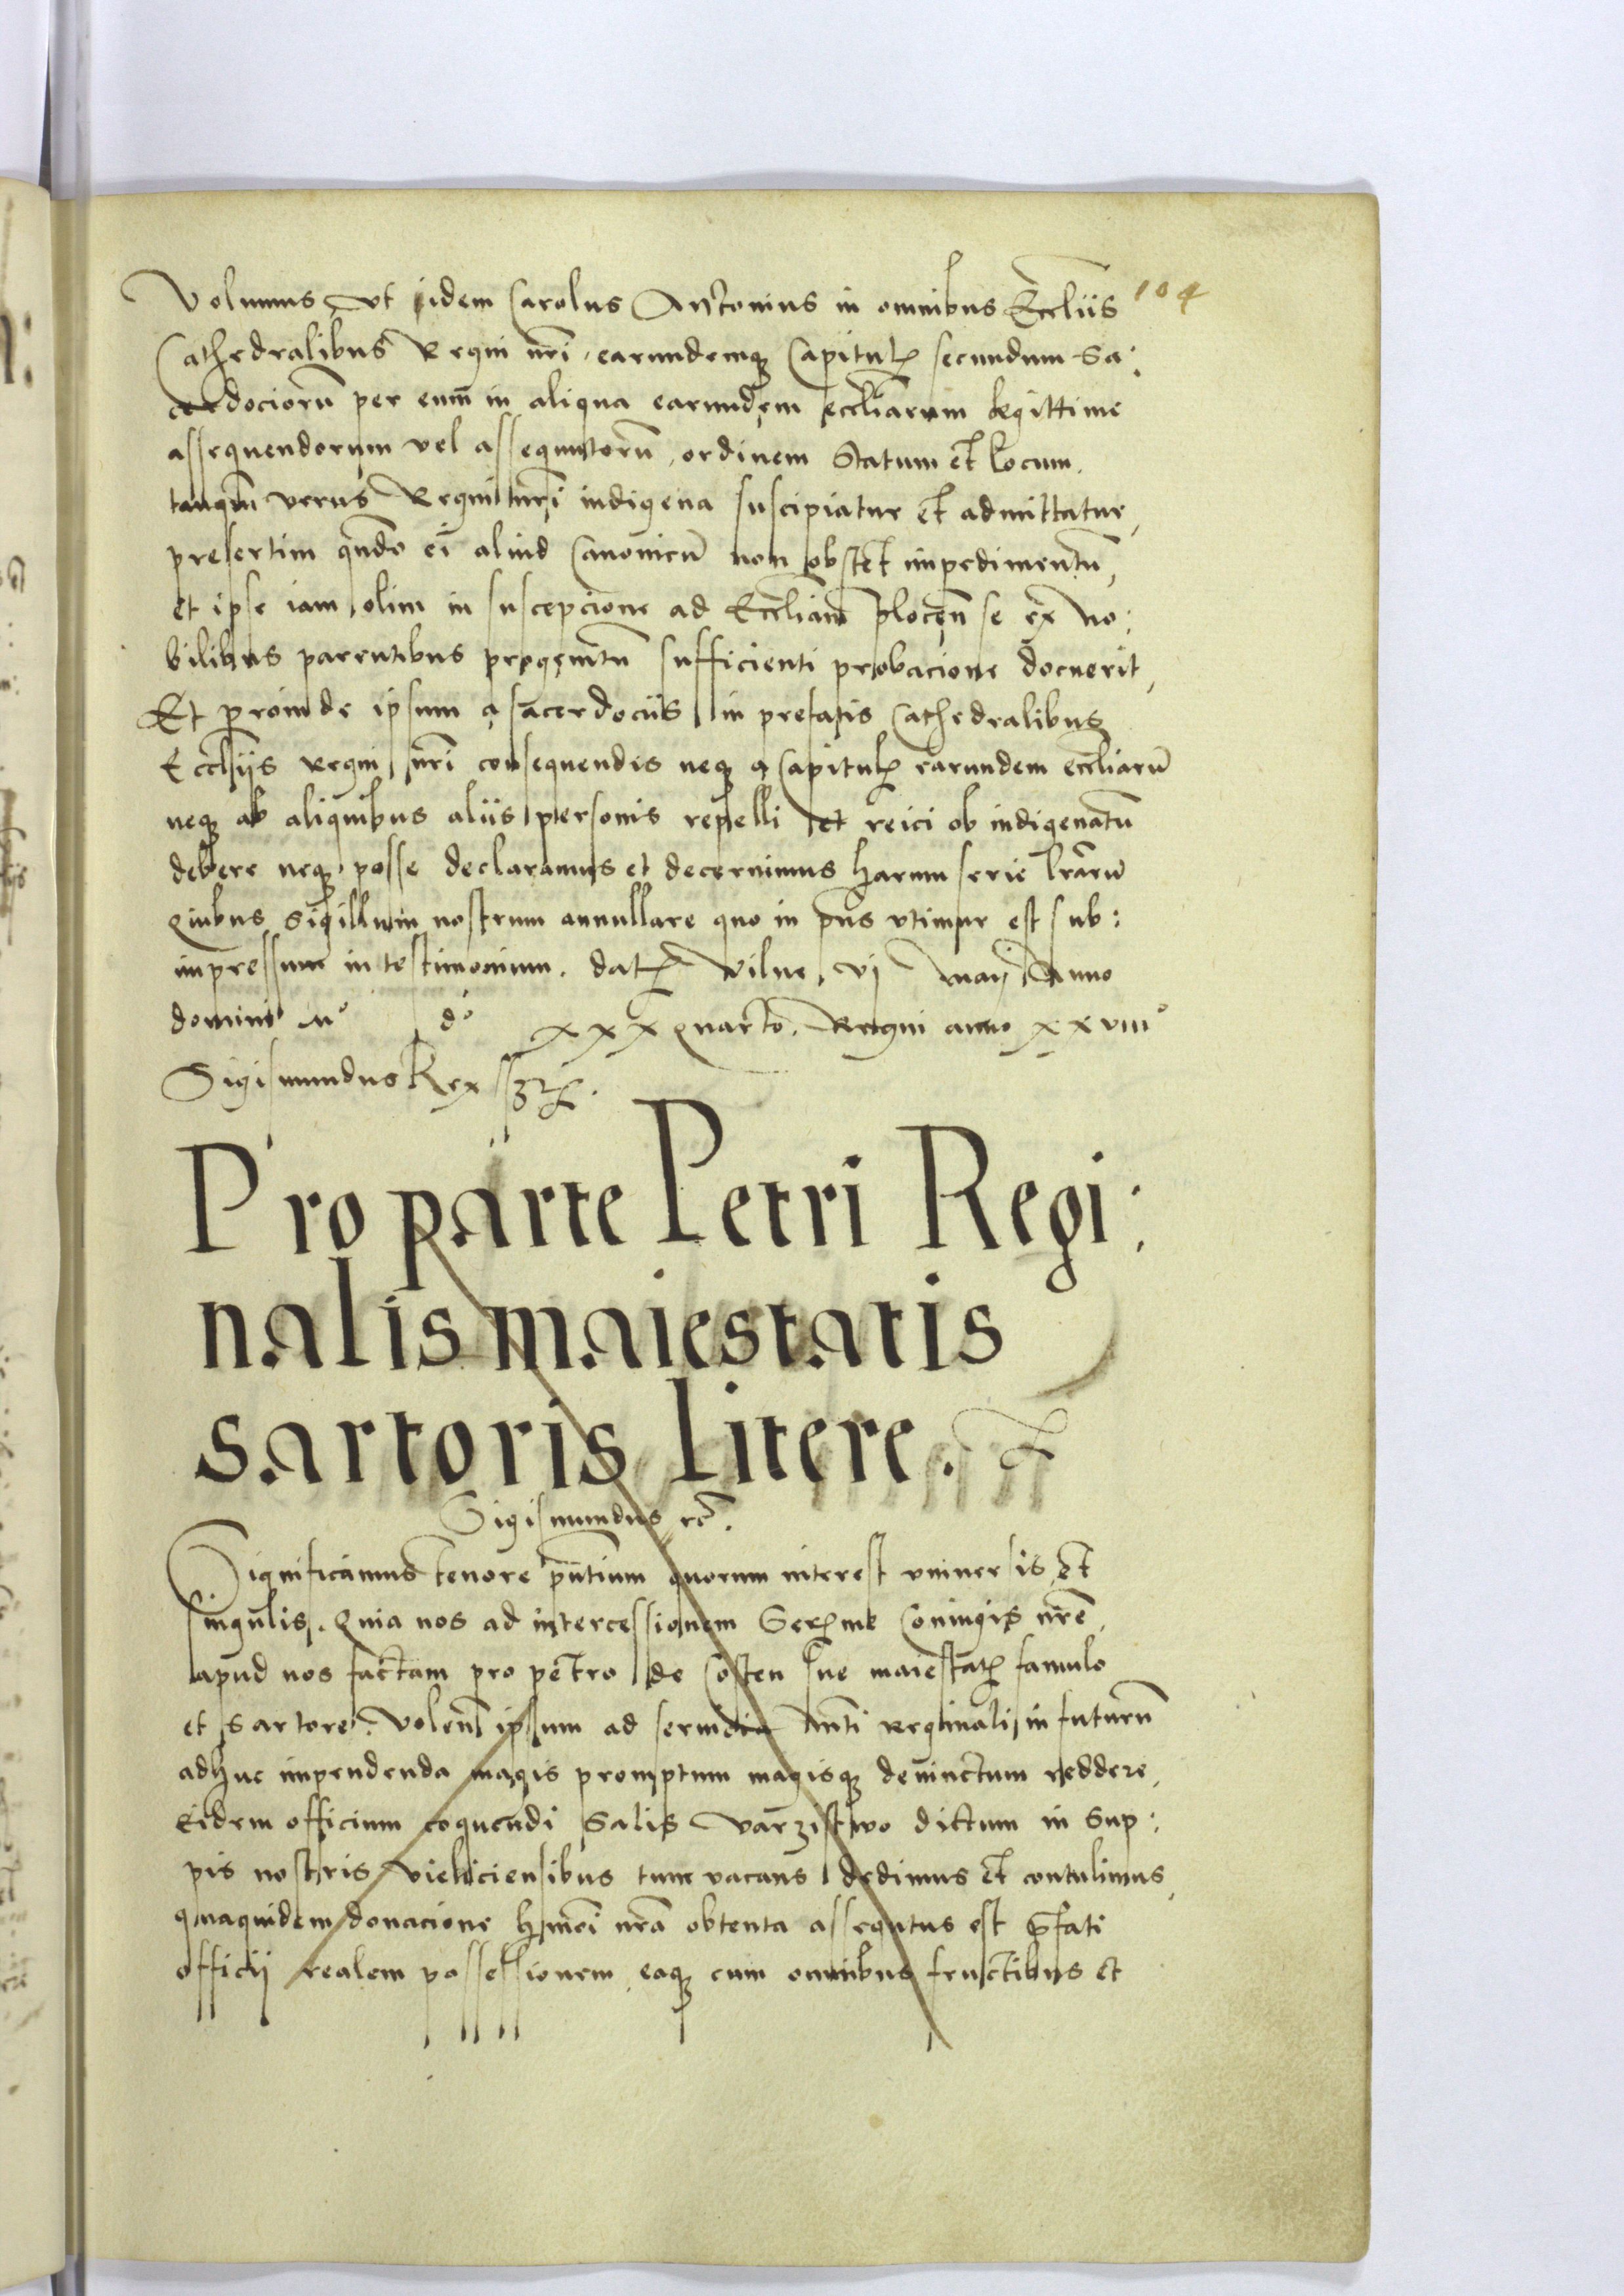 104
Volumus vt iidem Carolus Antonius in omnibus Eccliis
Cathedralibus Regni nri, earundemqꝫ Capitulꝭ secundum Sa:
cerdociorū per eum in aliqua earundem eccliarum legittime
assequendorum vel assequutorū, ordinem Statum et locum,
tanqm̄ verus Regni nri indigena suscipiatur et admittatur,
presertim qn̄do ei aliud Canonicū non obstet impedimentū,
et ipse iam olim in suscepcione ad Eccliam plocen̄se ex no:
bilibus parentibus progenitū sufficienti probacione docuerit,
Et proinde ipsum a sacerdociis in prefatis Cathedralibus
Eccliis regni nri consequendis neqꝫ a Capitulꝭ earundem eccliarū
neqꝫ ab aliquibus aliis personis repelli et reici ob indigenatū
debere neqꝫ posse declaramus et decernimus harum serie lrarū
Quibus sigillum nostrum annullare quo in pn̄s vtimur est sub:
impressum in testimonium. datꝭ Vilne, vj maij Anno
domini Mo do xxx quarto. Regni anno xxviiio
Sigismundus Rex sszꝭ.
Pro parte Petri Regi:
nalis maiestatis
sartoris litere.
Sigismundus rc̄.
Significamus tenore pn̄tium quorum interest vniuersis et
singulis. Quia nos ad intercessionem Serꝭme Coniugis nrē
apud nos factam pro petro de Costen sue maiestatꝭ famulo
et sartore. Volen̄ ipsum ad seruicia Mti reginali in futurū
adhuc impendenda magis promptum magisqꝫ deuinctum reddere,
Eidem officium coquendi Salis varzistwo dictum in Sup:
pis nostris vieliciensibus tum vacans dedimus et contulimus,
quaquidem donacione hmōi nrā obtenta assequtus est p̄fati
officij realem possessionem, eaqꝫ cum omnibus fructibus et